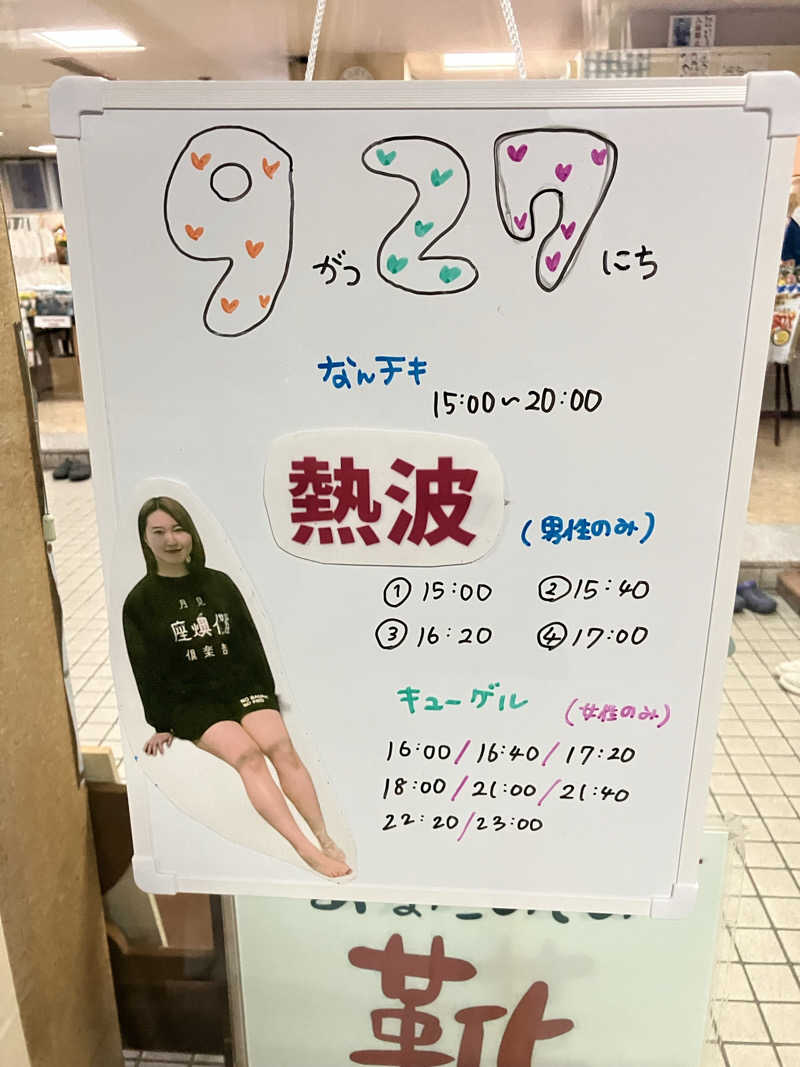 9がつ27にち
なんチキ
15:00～20:00
熱波 (男性のみ)
① 15:00 ② 15:40
③ 16:20 ④ 17:00
キューゲル (女性のみ)
16:00/16:40/17:20
18:00/21:00/21:40
22:20/23:00
月見
倶楽部
靴